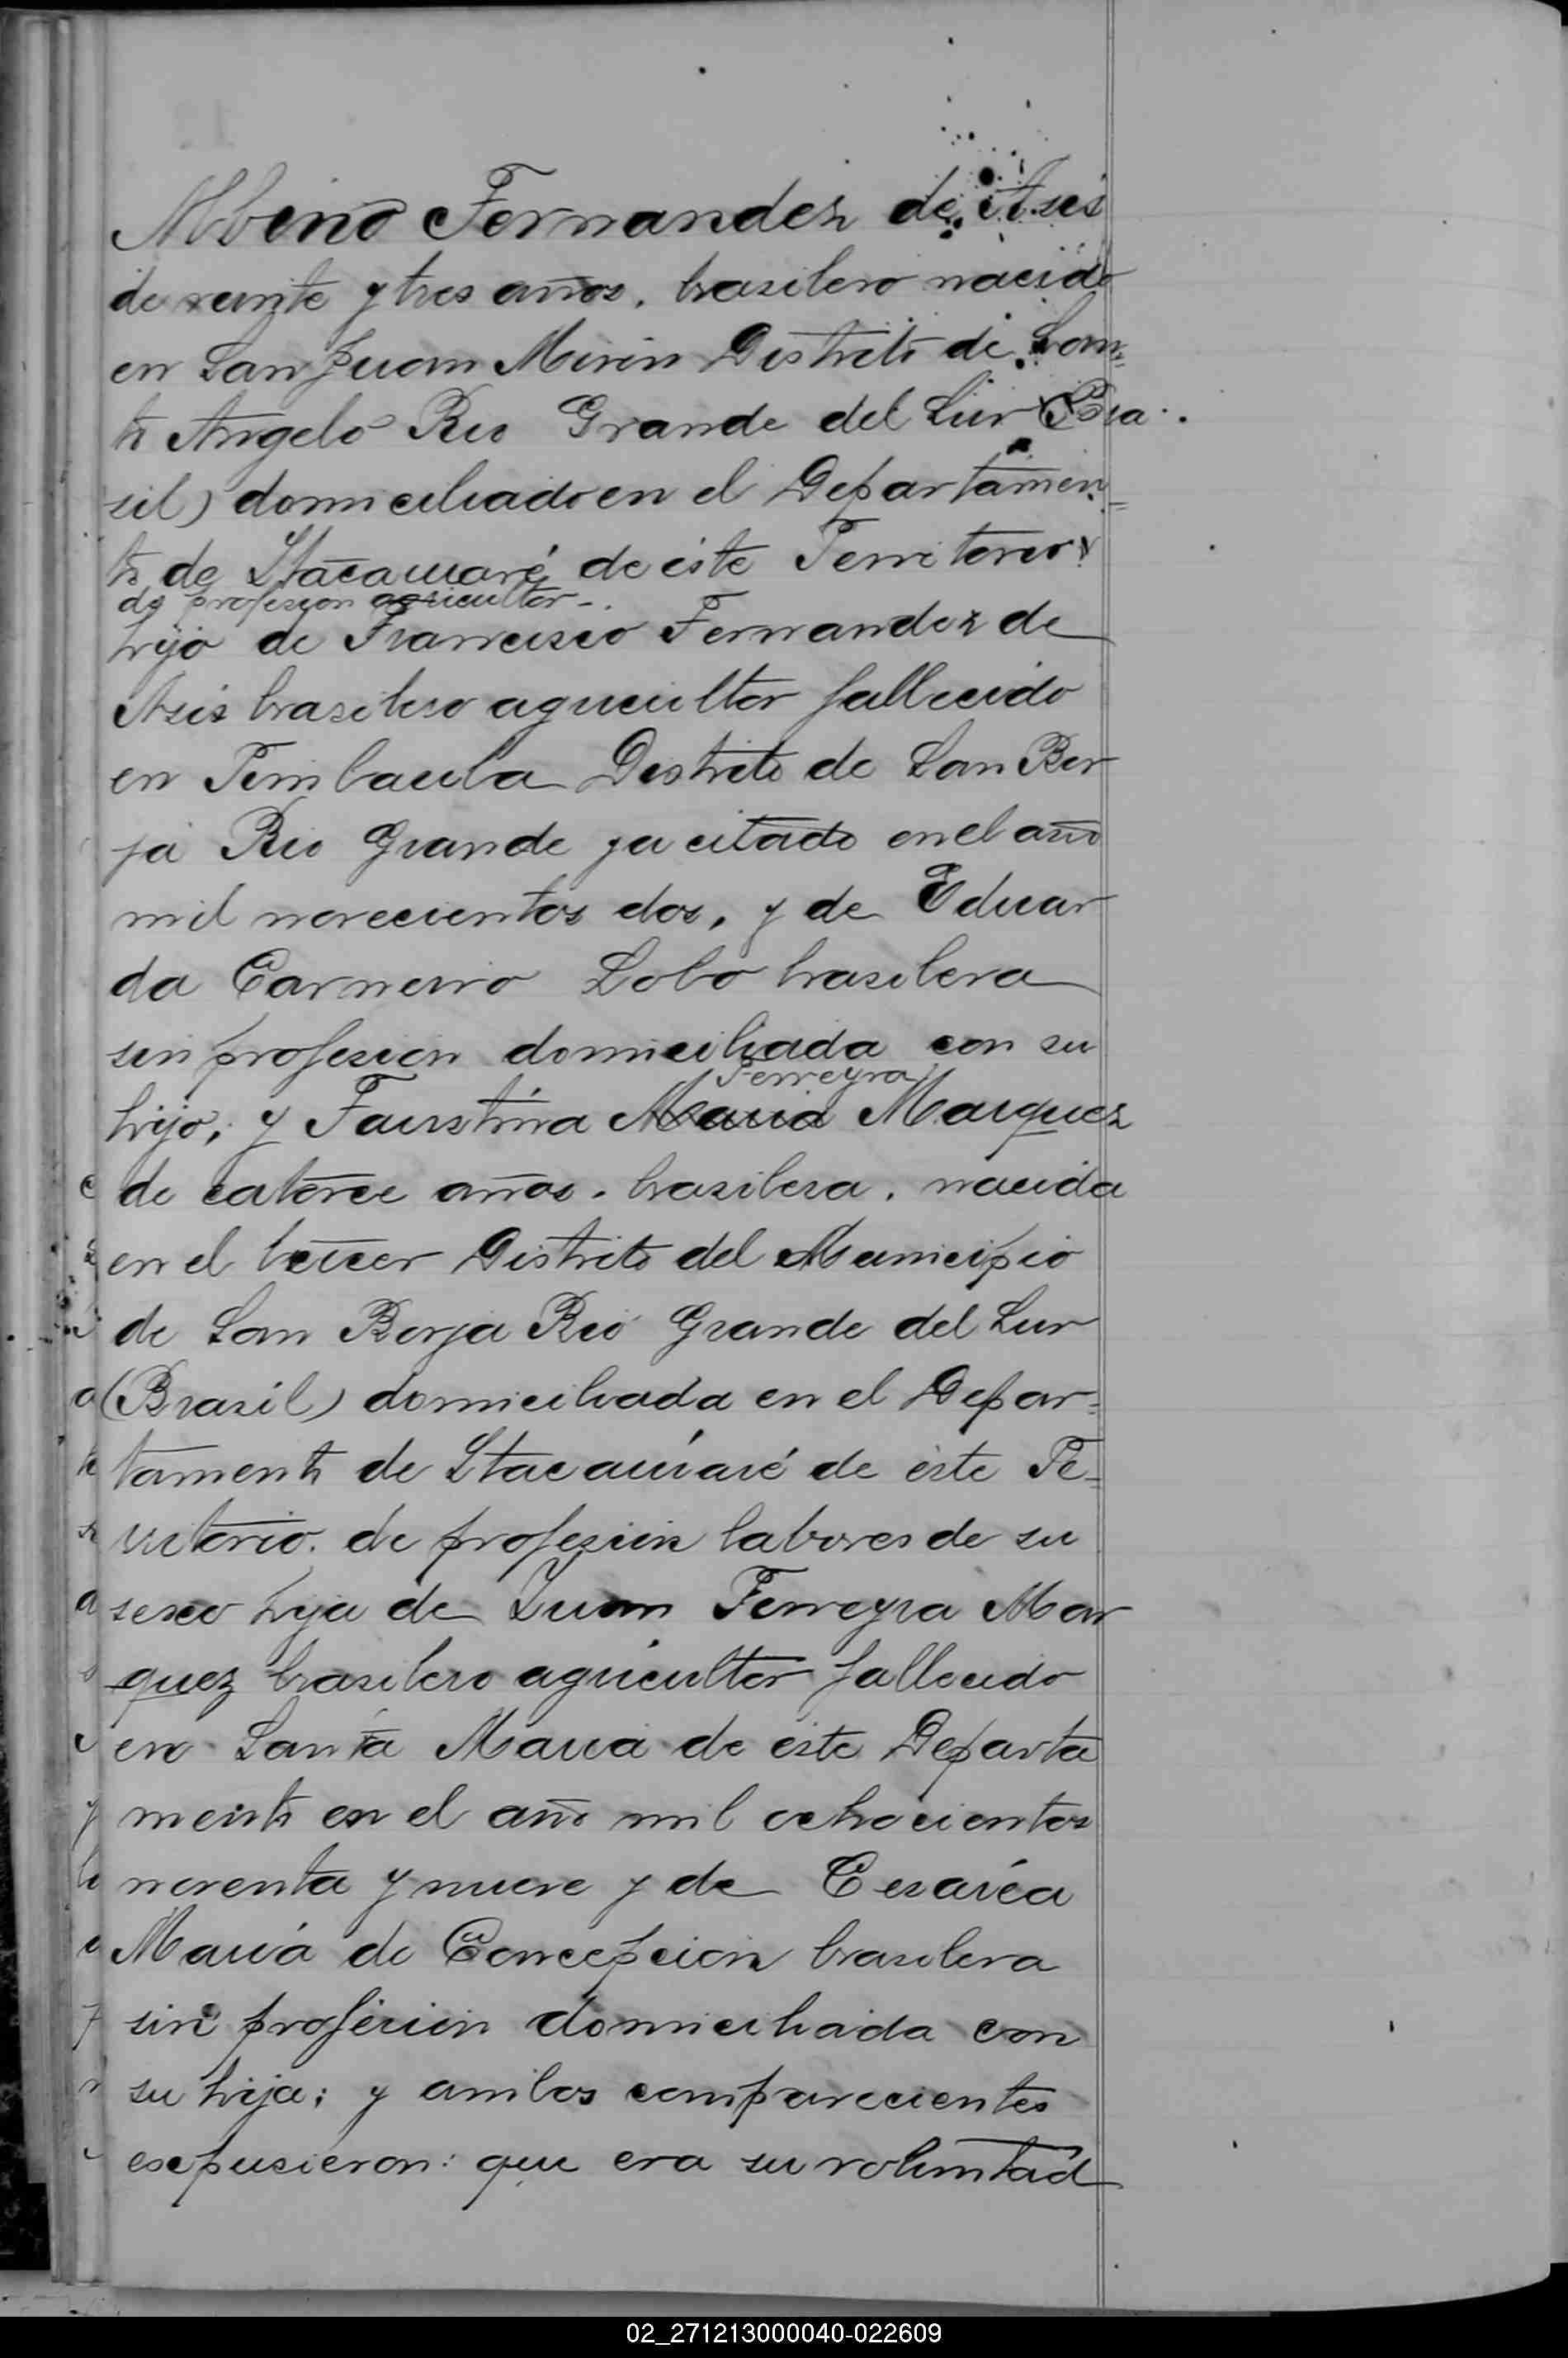 Albino Fernandez de Asis
de veinte y tres años, brasilero nacido
en San Juan Mirin Distrito de San=
to Angelo Rio Grande del Sur (Bra
sil) domiciliado en el Departamen=
to de Itacaruaré de éste Territorio
de profesion agricultor
hijo de Francisco Fernandez de
Asis brasilero agricultor fallecido
en Timbauba Distrito de San Bor
ja Rio Grande ya citado en el año
mil novecientos dos, y de Eduar
da Carneiro Lobo brasilera
sin profesion domiciliada con su
Ferreyra
hijo; y Faustina Maria Marquez
de catorce años, brasilera, nacida
en el tercer Distrito del Municipio
de San Borja Rio Grande del Sur
(Brasil) domiciliada en el Depar=
tamento de Itacaruaré de éste Te=
rritorio, de profesion labores de su
sexo hija de Juan Ferreyra Mar
quez brasilero agricultor fallecido
en Santa Maria de éste Departa
mento en el año mil ochocientos
noventa y nueve y de Cesaréa
Maria de Concepcion brasilera
sin profesion domiciliada con
su hija; y ambos comparecientes
expusieron: que era su voluntad
02_271213000040-022609